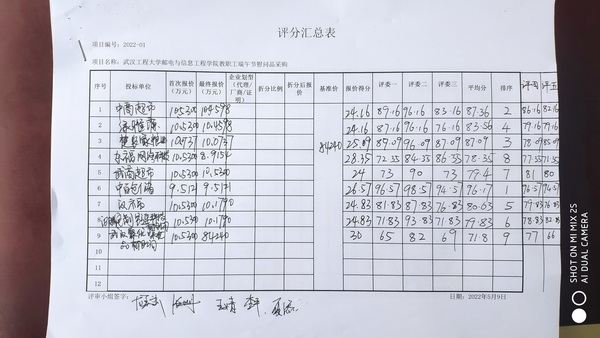 评分汇总表
项目编号：2022-01
项目名称：武汉工程大学邮电与信息工程学院教职工端午节慰问品采购
序号 投标单位 首次报价（万元） 最终报价（万元） 企业划型（代理/厂商/证明） 折分比例 折分后报价 基准价 报价得分 评委一 评委二 评委三 平均分 排序 评委四 评委五
8.4240
1 中商超市 10.5300 10.4598 24.16 89.16 96.16 83.16 87.36 2 86.16 82.16
2 10.5300 10.4598 24.16 87.16 96.16 76.16 83.56 4 79.16 79.16
3 10.7737 10.0737 25.09 87.09 96.09 87.09 87.09 3 78.09 85.09
4 10.5300 8.9154 28.35 72.35 84.35 86.35 78.35 8 77.35 71.35
5 10.5300 10.5300 24 73 90 73 79.4 7 81 80
6 9.5121 9.5121 26.57 96.57 98.57 94.57 96.17 1 96.57 94.57
7 10.5300 10.1790 24.83 81.83 87.83 76.83 80.63 5 79.83 76.83
8 10.530 10.1790 24.83 71.83 93.83 71.83 79.83 6 78.83 82.83
9 10.5300 8.4240 30 65 82 69 71.8 9 77 66
10
11
12
评审小组签字：
日期：2022年5月9日
SHOT ON MI MIX 2S
AI DUAL CAMERA